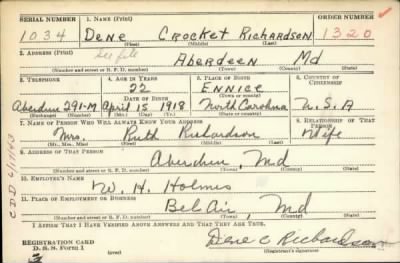 SERIAL NUMBER 1. NAME (Print) ORDER NUMBER
1034 DENE CROCKET RICHARDSON 1320
(First) (Middle) (Last)
2. ADDRESS (Print)
See file ABERDEEN Md
(Number and street or R. F. D. number) (Town) (County) (State)
3. TELEPHONE 4. AGE IN YEARS 5. PLACE OF BIRTH 6. COUNTRY OF CITIZENSHIP
22 ENNICE
DATE OF BIRTH (Town or county)
Aberdeen 291-M April 15 1918 North Carolina U.S.A
(Exchange) (Number) (Mo.) (Day) (Yr.) (State or country)
7. NAME OF PERSON WHO WILL ALWAYS KNOW YOUR ADDRESS 8. RELATIONSHIP OF THAT PERSON
Mrs. Ruth Richardson Wife
(Mr., Mrs., Miss) (First) (Middle) (Last)
9. ADDRESS OF THAT PERSON
Aberdeen, Md
(Number and street or R. F. D. number) (Town) (County) (State)
10. EMPLOYER'S NAME
W. H. Holmes
11. PLACE OF EMPLOYMENT OR BUSINESS
Bel Air, Md
(Number and street or R. F. D. number) (Town) (County) (State)
I AFFIRM THAT I HAVE VERIFIED ABOVE ANSWERS AND THAT THEY ARE TRUE.
REGISTRATION CARD
D. S. S. Form 1
Dene C Richardson
(Registrant's signature)